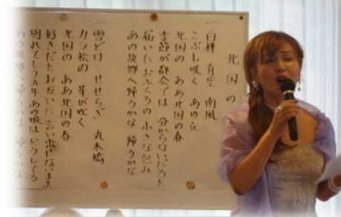 北国の
一 白樺 青空 南風
こぶし咲く あの丘
北国の ああ北国の春
季節が都会では 分からないだろと
届いたおふくろの 小さな包み
あの故郷へ帰ろかな 帰ろかな
雪どけ せせらぎ 丸木橋
から松の 芽が吹く
北国の ああ北国の春
好きだとお互いに 言い出せないまま
別れてもう五年 あの娘はどうしてる